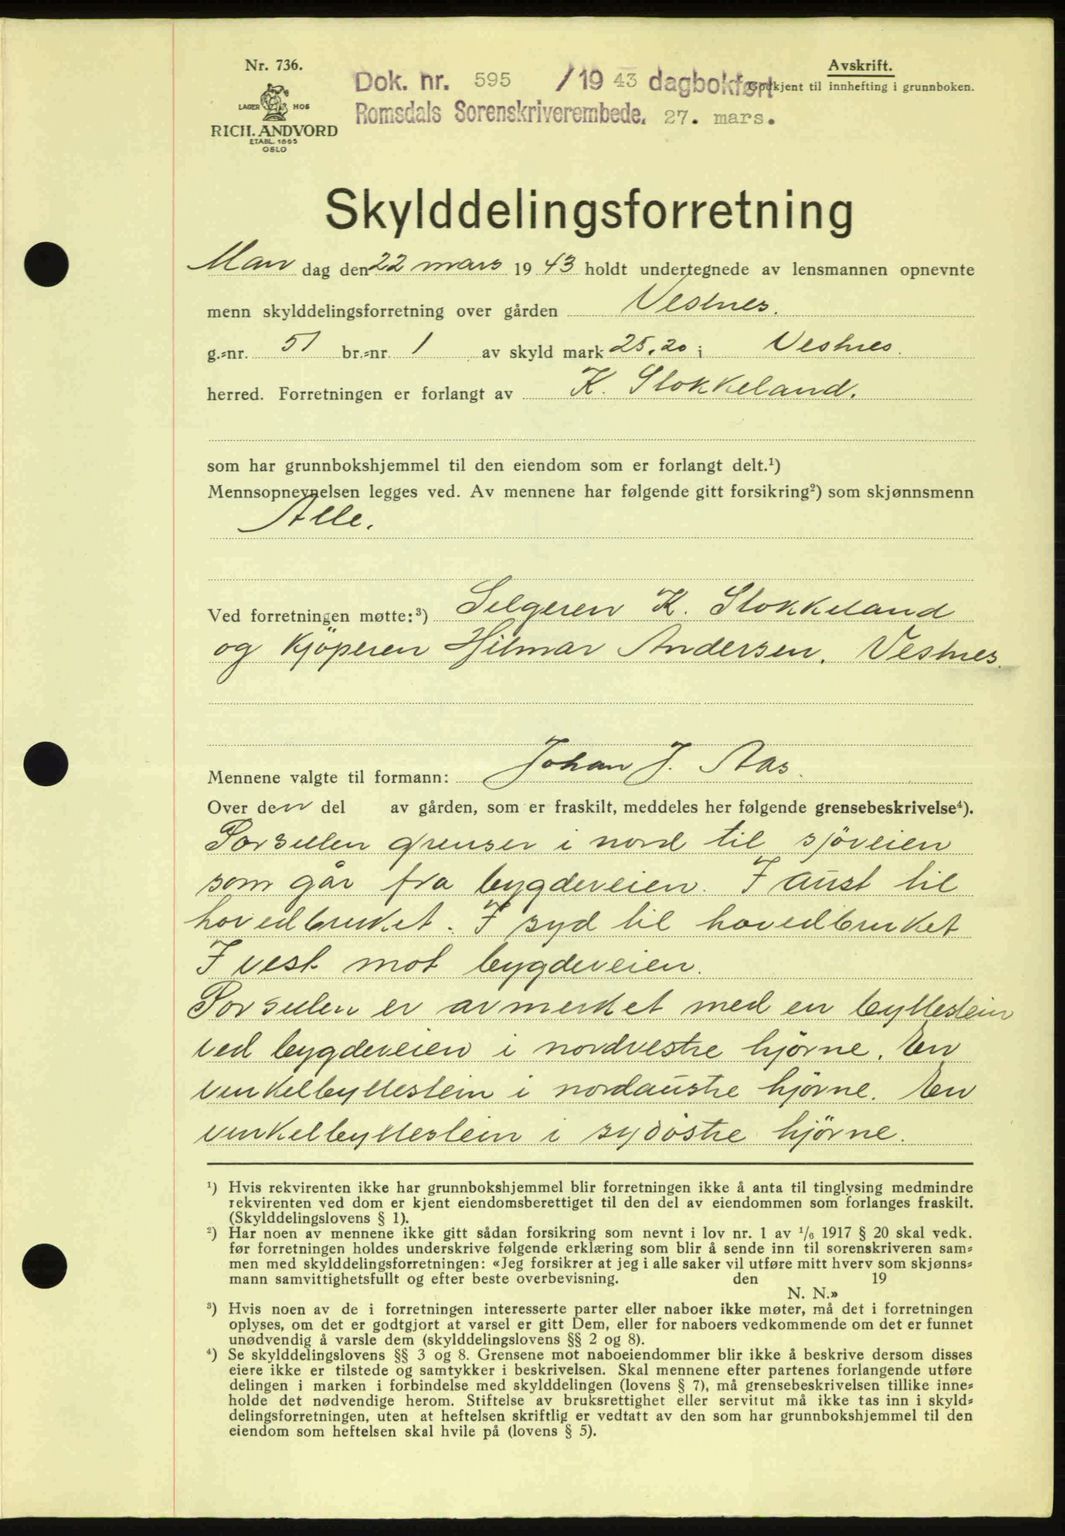 Nr. 736.
LAGER HOS
RICH. ANDVORD
ETABL. 1865
OSLO
Dok. nr. 595 /19 43 dagbokført
Romsdals Sorenskriverembede. 27. mars.
Avskrift.
Godkjent til innhefting i grunnboken.
Skylddelingsforretning
Man dag den 22 mars 19 43 holdt undertegnede av lensmannen opnevnte
menn skylddelingsforretning over gården Vestnes.
g.=nr. 51 br.=nr. 1 av skyld mark 25.20 i Vestnes.
herred. Forretningen er forlangt av K. Stokkeland.
som har grunnbokshjemmel til den eiendom som er forlangt delt.¹)
Mennsopnevnelsen legges ved. Av mennene har følgende gitt forsikring²) som skjønnsmenn
Alle.
Ved forretningen møtte:³) Selgeren K. Stokkeland
og kjöperen Hilmar Andersen. Vestnes.
Mennene valgte til formann: Johan J. Aas.
Over den del av gården, som er fraskilt, meddeles her følgende grensebeskrivelse⁴).
Parsellen grenser i nord til sjöveien
som går fra bygdeveien. I aust til
hovedbruket. I syd til hovedbruket
I vest mot bygdeveien.
Parsellen er avmerket med en byttestein
ved bygdeveien i nordvestre hjörne. En
vinkelbyttestein i nordaustre hjörne. En
vinkelbyttestein i sydöstre hjörne.
¹) Hvis rekvirenten ikke har grunnbokshjemmel blir forretningen ikke å anta til tinglysing medmindre
rekvirenten ved dom er kjent eiendomsberettiget til den del av eiendommen som forlanges fraskilt.
(Skylddelingslovens § 1).
²) Har noen av mennene ikke gitt sådan forsikring som nevnt i lov nr. 1 av ¹/₆ 1917 § 20 skal vedk.
før forretningen holdes underskrive følgende erklæring som blir å sende inn til sorenskriveren sam=
men med skylddelingsforretningen: «Jeg forsikrer at jeg i alle saker vil utføre mitt hverv som skjønns=
mann samvittighetsfullt og efter beste overbevisning. den 19
N. N.»
³) Hvis noen av de i forretningen interesserte parter eller naboer ikke møter, må det i forretningen
oplyses, om det er godtgjort at varsel er gitt Dem, eller for naboers vedkommende om det er funnet
unødvendig å varsle dem (skylddelingslovens §§ 2 og 8).
⁴) Se skylddelingslovens §§ 3 og 8. Grensene mot naboeiendommer blir ikke å beskrive dersom disses
eiere ikke er tilstede og samtykker i beskrivelsen. Skal mennene efter partenes forlangende utføre
delingen i marken i forbindelse med skylddelingen (lovens § 7), må grensebeskrivelsen tillike inne=
holde det nødvendige herom. Stiftelse av bruksrettighet eller servitut må ikke tas inn i skyld=
delingsforretningen, uten at heftelsen skriftlig er vedtatt av den som har grunnbokshjemmel til den
eiendom som heftelsen skal hvile på (lovens § 5).